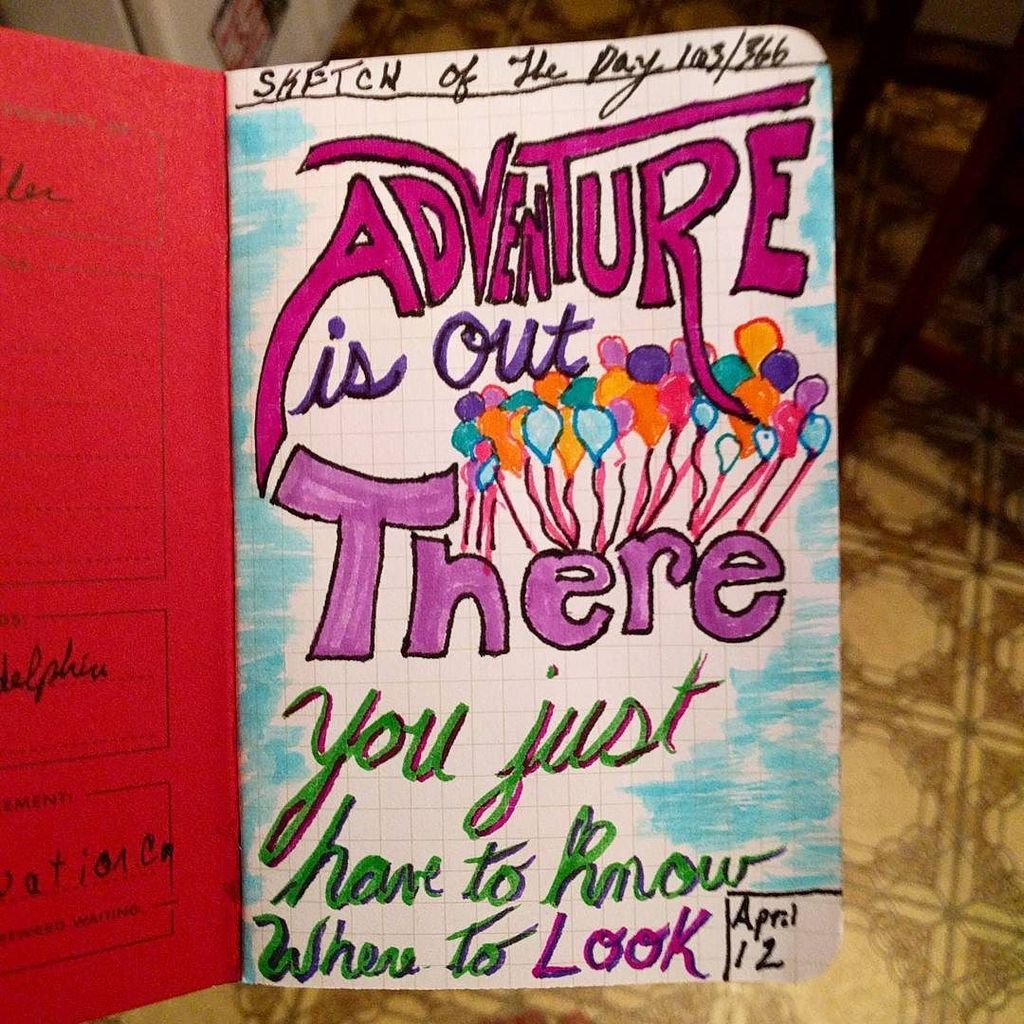 SKETCH of The Day 103/366
ADVENTURE
is out
There
you just
have to know
Where to LOOK
April
12
delphia
EMENT:
EWARD WAITING